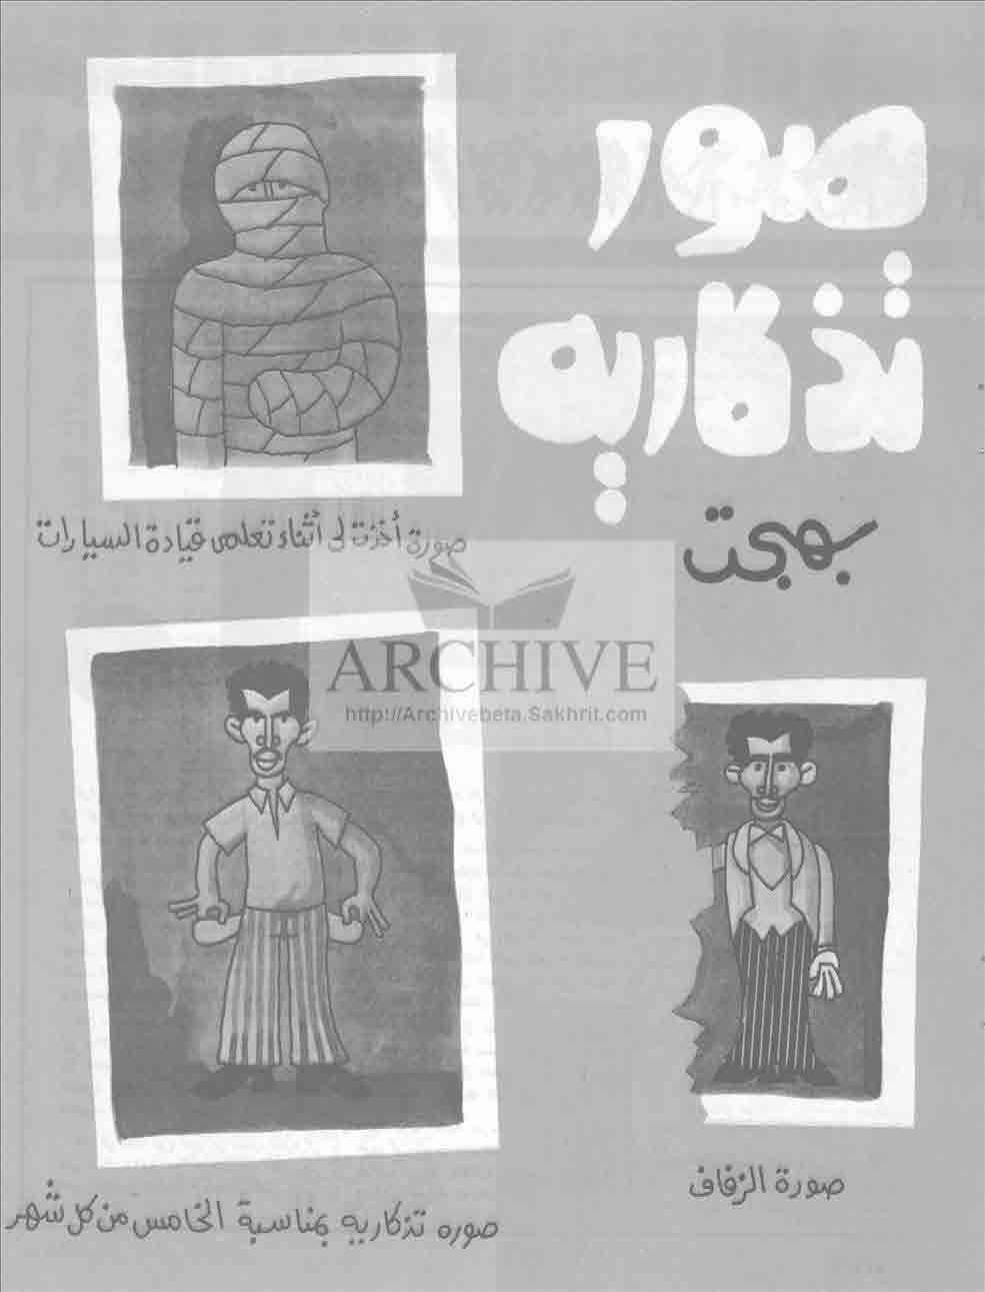 صور
تذكاريه
بهجت
صورة أخذت لى أثناء تعلمى قيادة السيارات
ARCHIVE
http://Archivebeta.Sakhrit.com
صورة الزفاف
صوره تذكاريه بمناسبة الخامس من كل شهر